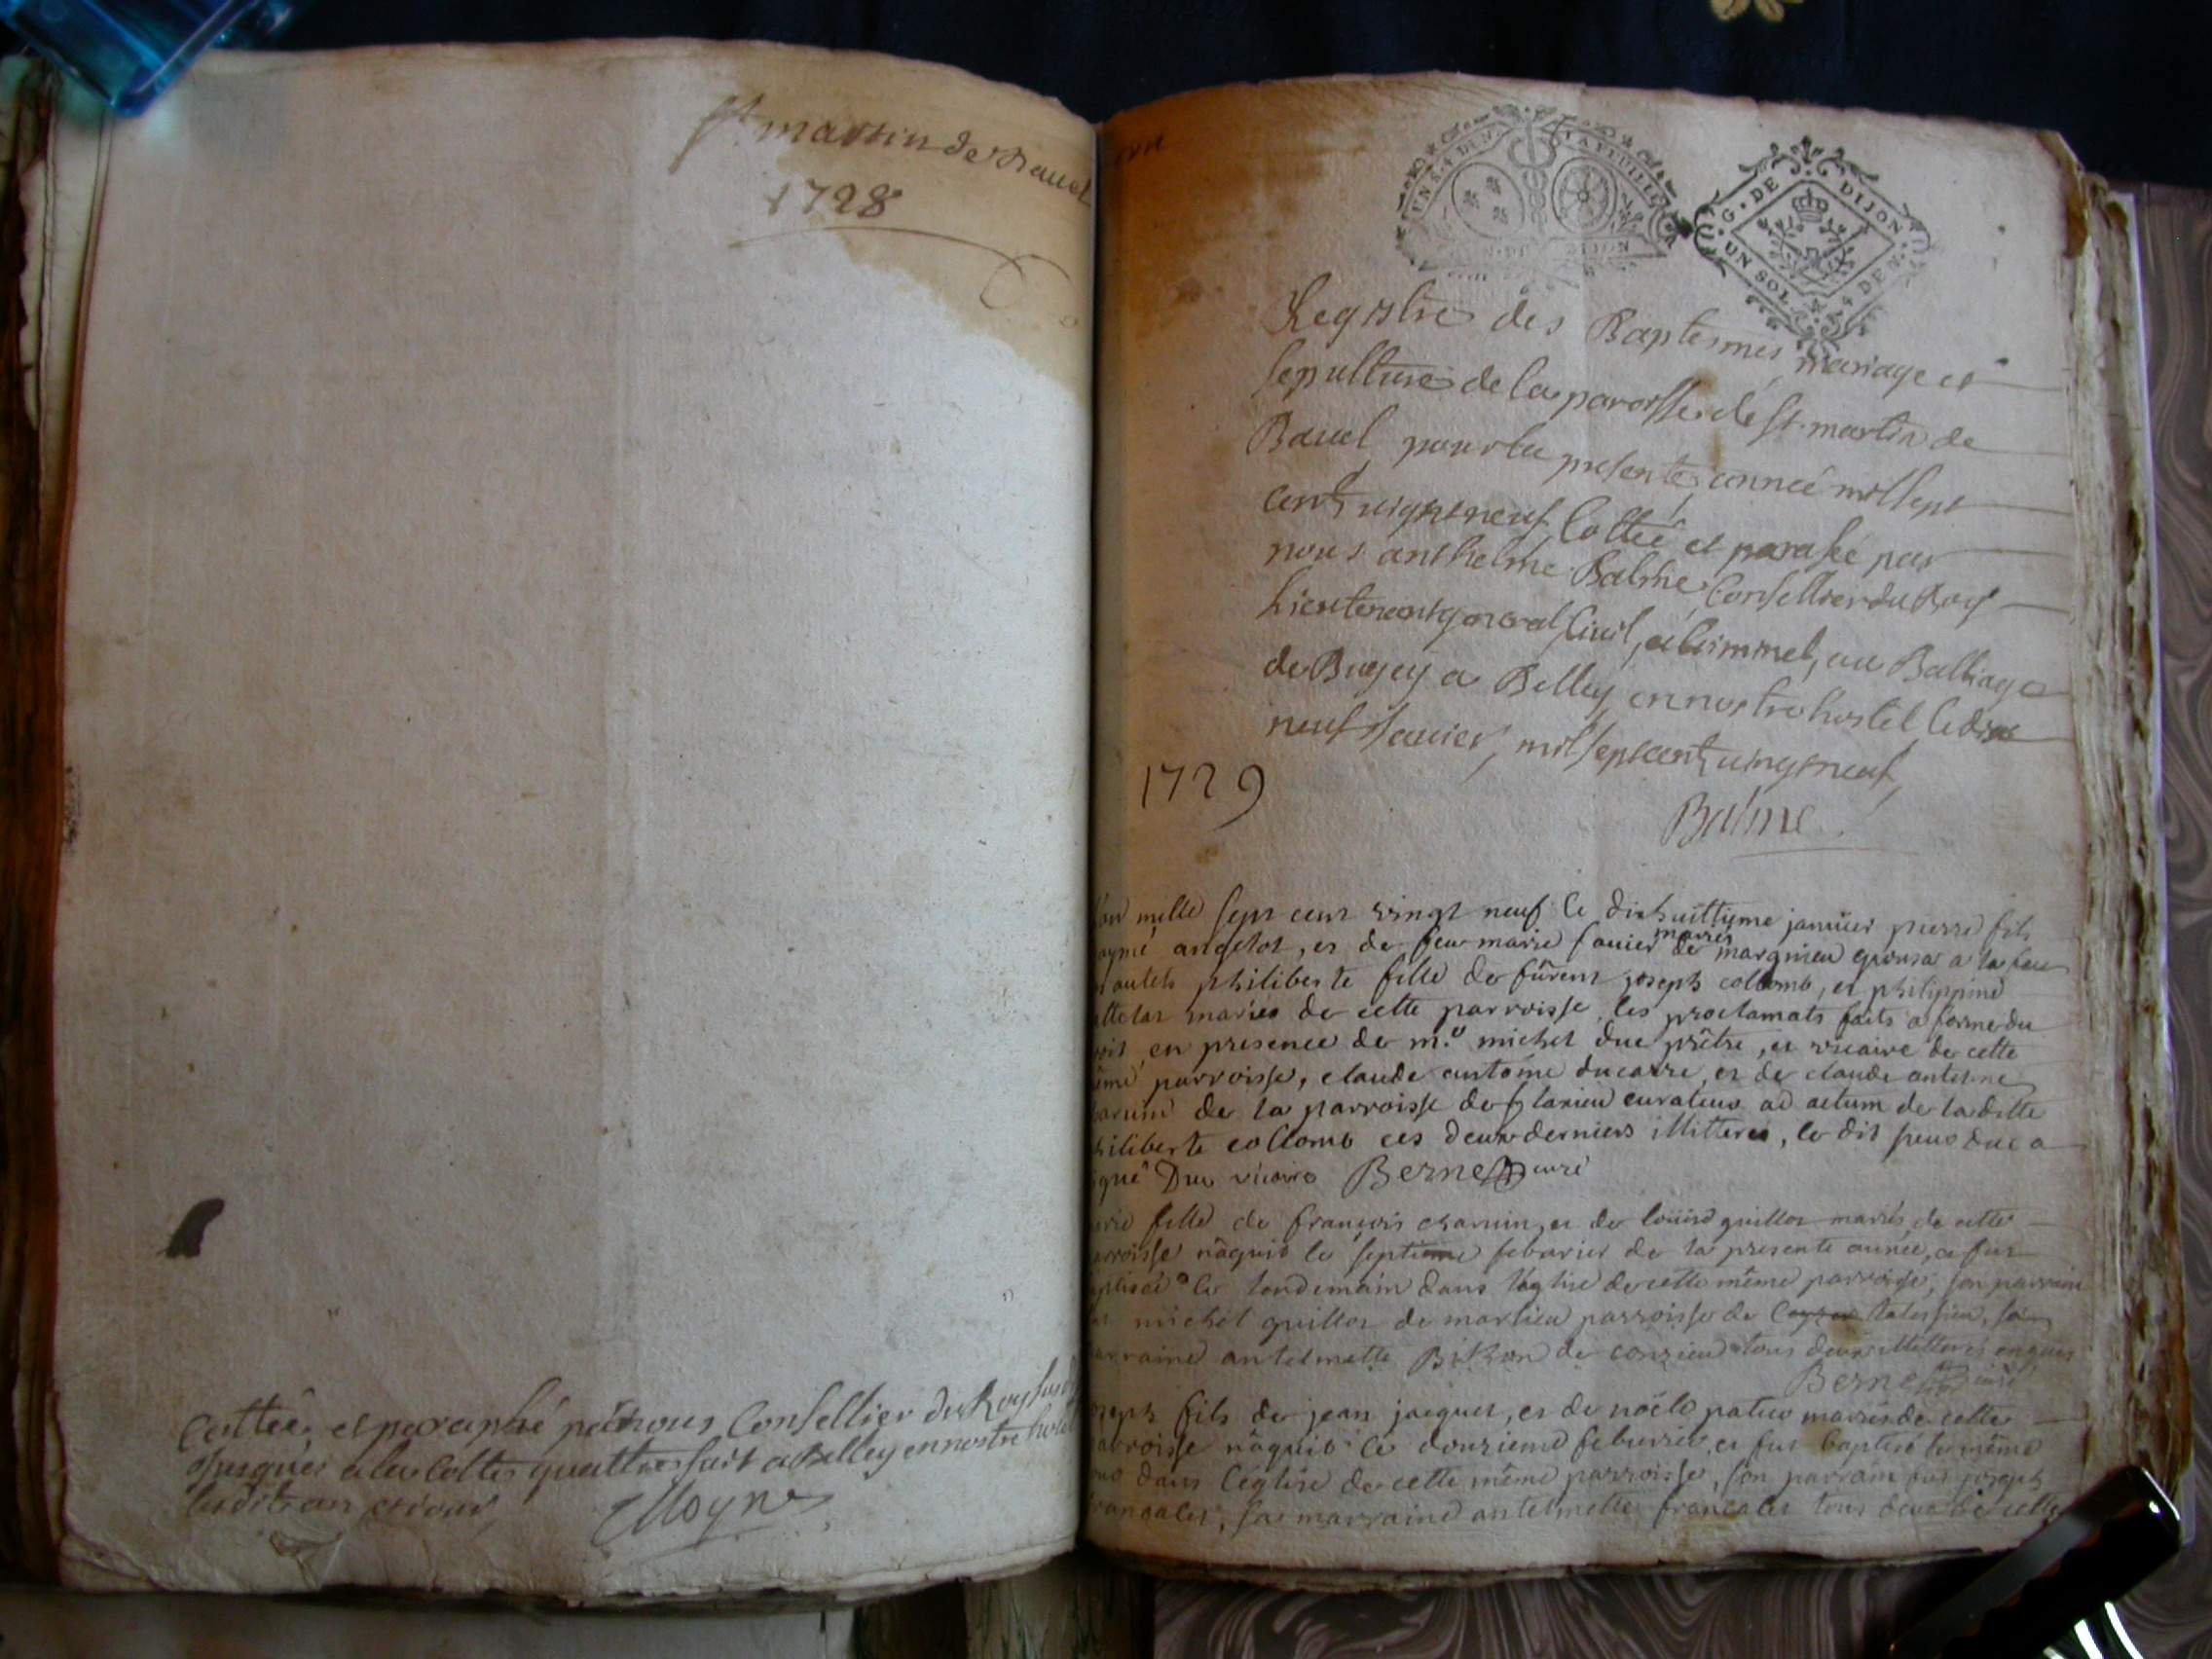 St martin de Bavel
1728
Cottée et paraphé par nous Conseiller du Roy
jusques a la Cotte quattre fait a Belley en nostre hotel
lesdits an et jour
Moyne
UN S. 4 DEN. LA FEUILLE
DIJON
G. DE DIJON
UN SOL 4 DEN.
Registre des Baptesmes mariage et
sepulture de la paroisse de St martin de
Bavel pour la presente année mil sept
cent vignt neuf Cottée et parafée par
nous anthelme Balme Conseillier du Roy
Lieutenant general Civil, et Criminel, au Balliage
de Bugey a Belley en nostre hostel le dix
neuf Janvier, mil sept cent vingt neuf,
Balme
1729
mille sept cent vingt neuf le dixhuittieme janvier pierre fils
angelot, et de feu marie mariés de marignieu epousa a la face
philiberte fille de fûrent joseph collomb, et philippine
mariés de cette parroisse, les proclamats faits a forme du
en presence de m.e michel duc prêtre, et vicaire de cette
parroisse, claude antoine ducarre, et de claude antelme
de la parroisse de flaxieu curateur ad actum de la ditte
philiberte collomb ces deux derniers illitteres, le dit sieur duc a
signé Duc vicaire Bernet curé
fille de françois charvin, et de louise guillot mariés de cette
parroisse nâquit le septieme febvrier de la presente année, et fut
le lendemain dans l'église de cette même parroisse, son parrain
michel guillot de marlieu parroisse de Talissieu, sa
marraine antelmette de conzieu tous deux illitteres enquis
Bernet curé
joseph fils de jean jacquet, et de noële patur mariés de cette
parroisse nâquit le douzieme febvrier, et fut baptisé le même
dans l'église de cette même parroisse, son parrain fut joseph
francalet, sa marraine antelmette francalet tous deux de cette